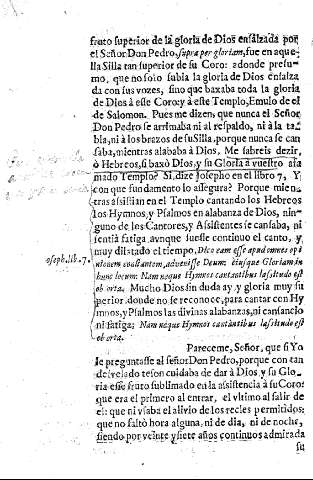 fruto superior de la gloria de Dios ensalzada por
el Señor Don Pedro, supra per gloriam, fue en aque-
lla Silla tan superior de su Coro: adonde presu-
mo, que no solo subia la gloria de Dios ensalza
da con sus vozes, sino que baxaba toda la gloria
de Dios à este Coro; y à este Templo, Emulo de el
de Salomon. Pues me dizen, que nunca el Señor
Don Pedro se arrimaba ni al respaldo, ni à la ta-
bla, ni à los brazos de su Silla, porque nunca se can
saba, mientras alababa à Dios. Me sabreis dezir,
ò Hebreos, si baxò Dios, y su Gloria à vuestro afa
mado Templo? Si, dize Josepho en el libro 7, Y
con que fundamento lo assegura? Porque mien-
tras assistian en el Templo cantando los Hebreos
los Hymnos, y Psalmos en alabanza de Dios, nin-
guno de los Cantores, y Assistentes se cansaba, ni
sentia fatiga, aunque fuesse continuo el canto, y
muy dilatado el tiempo. Dico eam esse apud omnes opi
Ioseph. lib. 7. nionem constantem, advenisse Deum; eiusque Gloriam in
hunc locum: Nam neque Hymnos cantantibus lasitudo est
ob orta. Mucho Dios sin duda ay, y gloria muy su
perior, donde no se reconoce, para cantar con Hy
mnos, y Psalmos las divinas alabanzas, ni cansancio
ni fatiga; Nam neque Hymnos cantàntibus lasitudo est
ob orta.
Pareceme, Señor, que si Yo
le preguntasse al señor Don Pedro, porque con tan
desvelado teson cuidaba de dàr à Dios, y su Glo-
ria este fruto sublimado en la assistencia à su Coro:
que era el primero al entrar, el ultimo al salir de
el: que ni usaba el alivio de los recles permitidos:
que no faltò hora alguna, ni de dia, ni de noche,
siendo por veinte y siete años continuos admirada
su